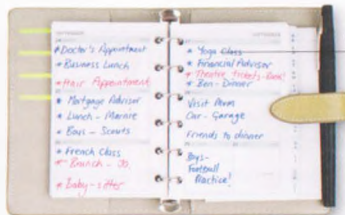 * Doctor's Appointment
* Business Lunch
* Hair Appointment
* Mortgage Advisor
* Lunch - Marie
* Boys - Scouts
* French Class
* Brunch - JS.
* Baby-sitter
* Yoga Class
* Financial Advisor
* Theatre tickets - Dad!
* Ben - Dinner
Visit Mum
Car - Garage
Friends to dinner
Boys -
Football
Practice!